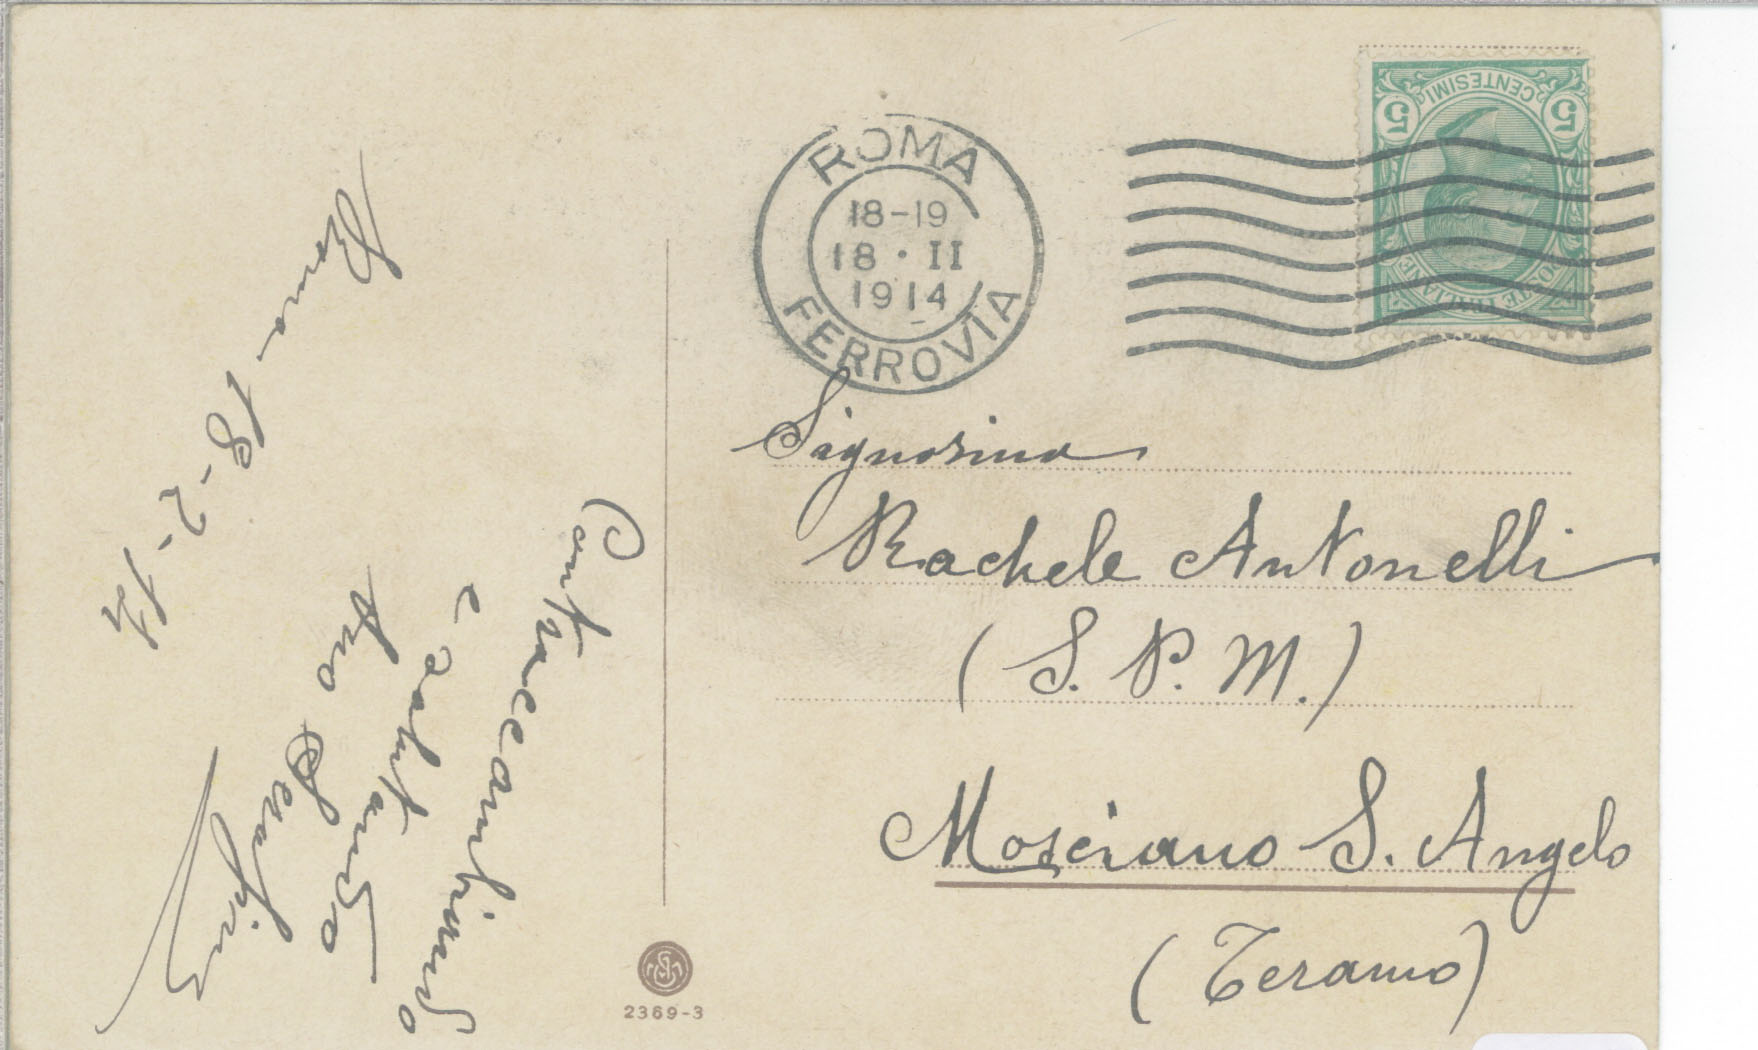 Roma 18-2-14
Contraccambiando
e salutando
suo Serafino
ROMA
18-19
18·II
1914
FERROVIA
5 CENTESIMI 5
POSTE ITALIANE
Signorina
Rachele Antonelli
(S. P. M.)
Mosciano S. Angelo
(Teramo)
2369-3